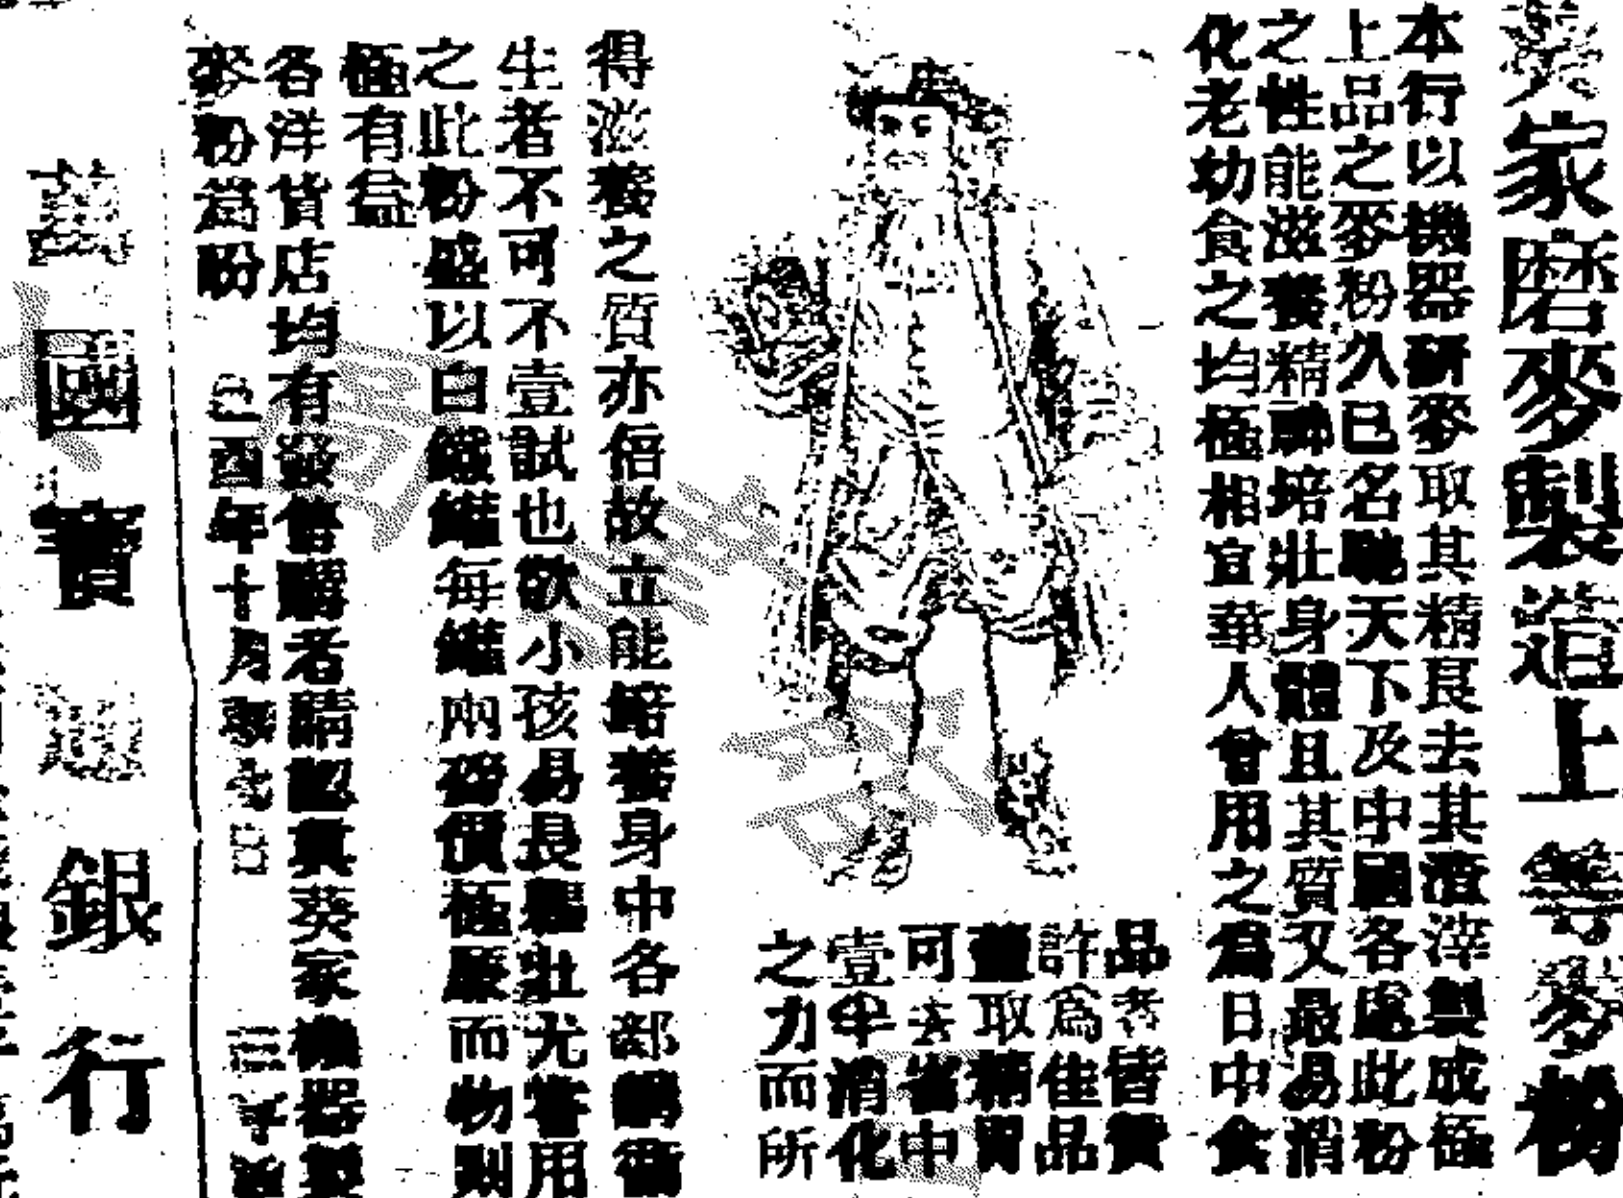 葵家磨麥製造上等麥粉
本行以機器研麥取其精良去其渣滓製成極
上品之麥粉久已名馳天下及中國各處此粉
之性能滋養精神培壯身體且其質又最易消
化老幼食之均極相宜華人曾用之爲日中食
品者皆贊
許爲佳品
蓋取精胃
可去省中
壹半消化
之力而所
得滋養之質亦倍故立能培養身中各部體衛
生者不可不壹試也歐小孩易長麤壯尤當用
之此粉盛以白鐵罐每罐兩磅價極廉而物則
極有益
各洋貨店均有發售購者請認眞葵家機器製
麥粉爲盼
己酉年十月
萬國寶通銀行